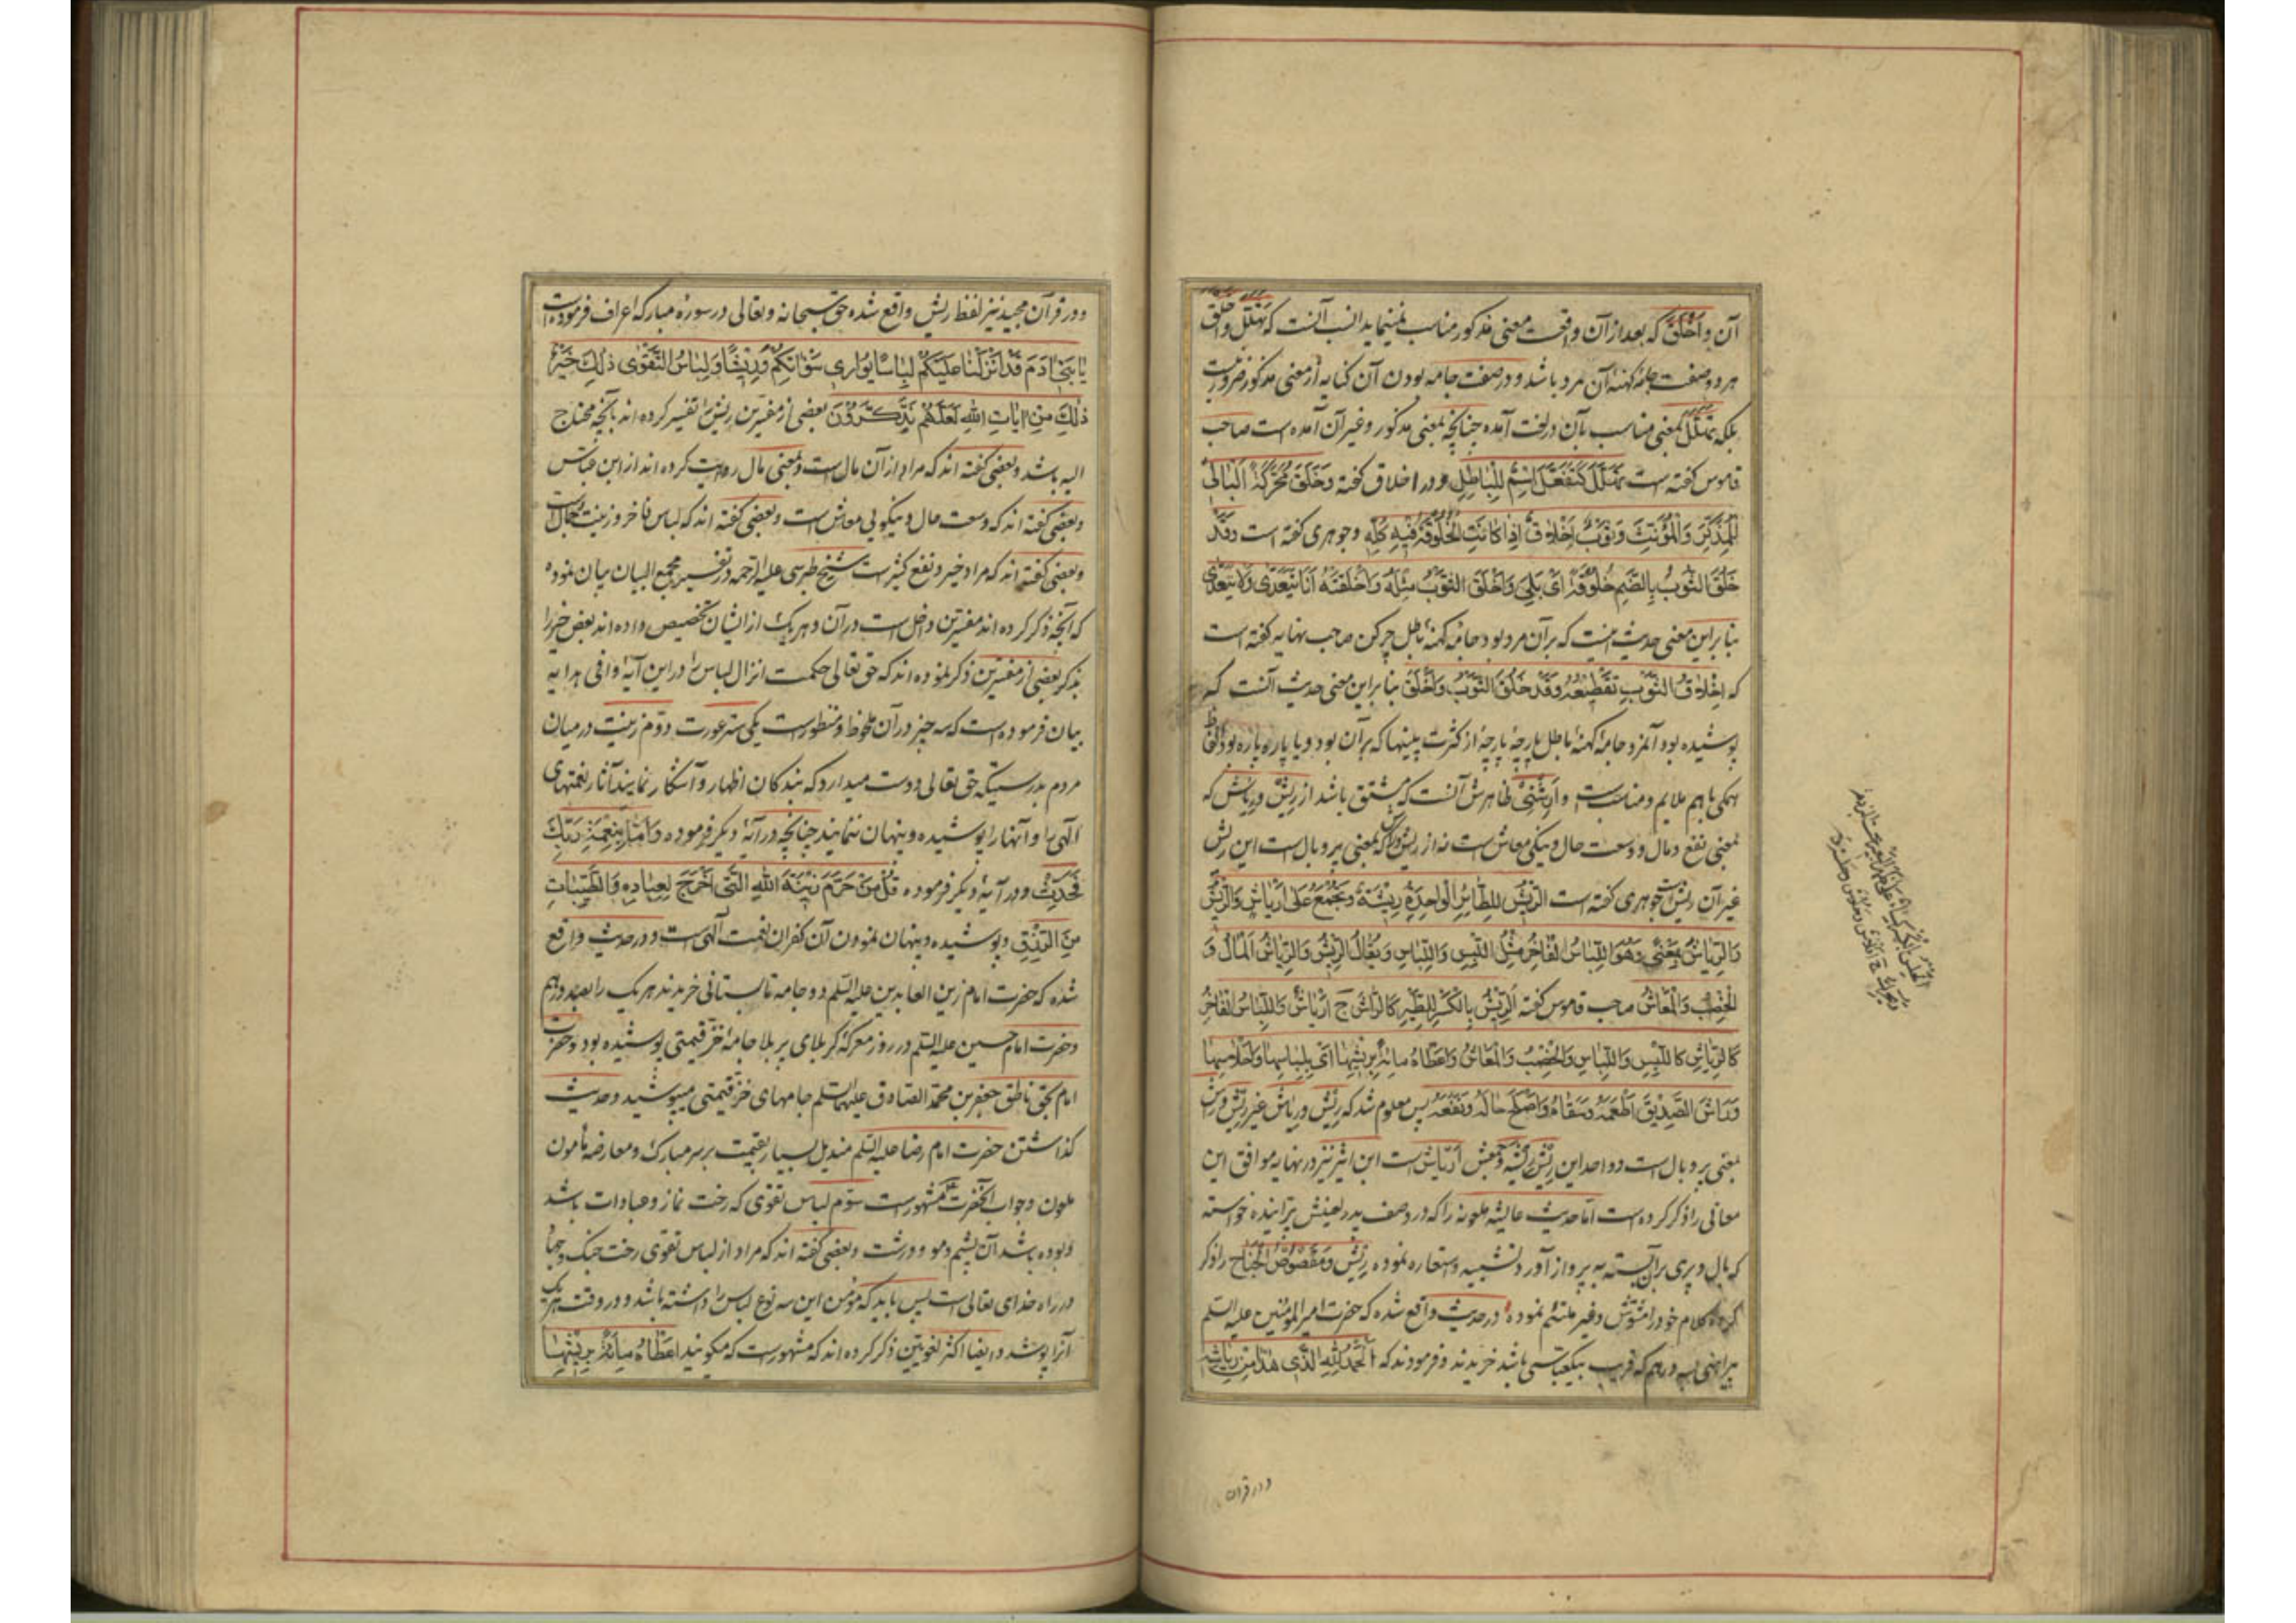 آن و اخلق که بعد از آن واقعست معنی مذکور مناسب نمینماید انسب آنست که تهلل و اخلق
هر دو صفت جامهٔ کهنه آن مرد باشد و در صفت جامه بودن آن کنایه از معنی مذکور ضرور نیست
بلکه بمعنی مناسب بآن در لغت آمده چنانچه بمعنی مذکور و غیر آن آمده است صاحب
قاموس گفته است اسْمٌ لِلْبَاطِلِ و در اخلاق گفته وَخَلَقَ مُحَرَّكَةً الْبَالِي
لِلْمُذَكَّرِ وَالْمُؤَنَّثِ وَثَوْبٌ أَخْلَاقٌ إِذَا كَانَتِ الْخُلُوقَةُ فِيهِ كُلِّهِ و جوهری گفته است وَقَدْ
خَلُقَ الثَّوْبُ بِالضَّمِّ خُلُوقَةً أَيْ بَلِيَ وَأَخْلَقَ الثَّوْبُ مِثْلُهُ وَأَخْلَقْتُهُ أَنَا يَتَعَدَّى وَلَا يَتَعَدَّى
بنا بر این معنی حدیث اینست که بر آن مرد بود جامهٔ کهنهٔ باطل چرکن صاحب نهایه گفته است
که إِخْلَاقُ الثَّوْبِ تَقْطِيعُهُ وَقَدْ خَلُقَ الثَّوْبُ وَأَخْلَقَ بنا بر این معنی حدیث آنست که
پوشیده بود آنمرد جامهٔ کهنهٔ باطل پارچهٔ پارچهٔ از کثرت پینها که بر آن بود و یا پاره پاره بود الفاظ
همگی با هم ملایم و مناسبست و ظاهرش آنست که مشتق باشد از ریش و ریاش که
بمعنی نفع و مال و وسعت حال و نیکی معاش است نه از ریش که بمعنی پر و بال است این ریش
غیر آن ریش است جوهری گفته است الرِّيشُ لِلطَّائِرِ الْوَاحِدَةُ رِيشَةٌ وَيُجْمَعُ عَلَى أَرْيَاشٍ وَالرِّيشُ
وَالرِّيَاشُ بِمَعْنًى وَهُوَ اللِّبَاسُ الْفَاخِرُ مِثْلُ اللِّبْسِ وَاللِّبَاسِ وَيُقَالُ الرِّيشُ وَالرِّيَاشُ الْمَالُ وَ
الْخِصْبُ وَالْمَعَاشُ صاحب قاموس گفته الرِّيشُ بِالْكَسْرِ لِلطَّيْرِ كَالرَّاشِ ج أَرْيَاشٌ وَاللِّبَاسُ الْفَاخِرُ
كَالرِّيَاشِ كَاللِّبْسِ وَاللِّبَاسِ وَالْخِصْبُ وَالْمَعَاشُ وَأَعْطَاهُ مِائَةً بِرِيشِهَا أَيْ بِلِبَاسِهَا وَأَحْلَاسِهَا
وَرَاشَ الصَّدِيقَ أَطْعَمَهُ وَسَقَاهُ وَأَصْلَحَ حَالَهُ وَنَفَعَهُ پس معلوم شد که ریش و ریاش غیر ریش
بمعنی پر و بال است و واحد این ریش ریشه و جمعش أَرْيَاش است ابن اثیر نیز در نهایه موافق این
معانی را ذکر کرده است اما حدیث عایشه ملعونه را که در وصف پدر لعینش خواسته
که بال و پری بر آن بسته به پرواز آورد تشبیه و استعاره نموده رِيش و مقصوص الجناح را ذکر
کرده کلام خود را مشوش و غیر ملتئم نموده و در حدیث واقع شده که حضرت امیر المؤمنین علیه السلم
پیراهنی بسه درهم که قریب بیکعباسی باشد خریدند و فرمودند که الْحَمْدُ لِلَّهِ الَّذِي هَذَا مِنْ رِيَاشِهِ
و در قرآن
و در قرآن مجید نیز لفظ ریش واقع شده حق سبحانه و تعالی در سورهٔ مبارکه اعراف فرموده است
يَا بَنِي آدَمَ قَدْ أَنْزَلْنَا عَلَيْكُمْ لِبَاسًا يُوَارِي سَوْآتِكُمْ وَرِيشًا وَلِبَاسُ التَّقْوَى ذَلِكَ خَيْرٌ
ذَلِكَ مِنْ آيَاتِ اللهِ لَعَلَّهُمْ يَذَّكَّرُونَ بعضی از مفسرین ریش را تفسیر کرده اند بآنچه محتاج
الیه باشد و بعضی گفته اند که مراد از آن مال است و بمعنی مال روایت کرده اند از ابن عباس
و بعضی گفته اند که وسعت حال و نیکویی معاش است و بعضی گفته اند که لباس فاخر و زینت و جمال است
و بعضی گفته اند که مراد خیر و نفع کثیر است شیخ طبرسی علیه الرحمه در تفسیر مجمع البیان بیان نموده
که آنچه ذکر کرده اند مفسرین داخل است در آن و هر یک از ایشان تخصیص داده اند بعض خبر را
بذکر بعضی از مفسرین ذکر نموده اند که حق تعالی حکمت انزال لباس را در این آیهٔ وافی هدایه
بیان فرموده است که سه چیز در آن ملحوظ و منظور است یکی ستر عورت دوم زینت در میان
مردم بدرستیکه حق تعالی دوست میدارد که بندکان اظهار و آشکار نمایند آثار نعمتهای
الهی را و آنها را پوشیده و پنهان ننمایند چنانچه در آیهٔ دیگر فرموده وَأَمَّا بِنِعْمَةِ رَبِّكَ
فَحَدِّثْ و در آیهٔ دیگر فرموده قُلْ مَنْ حَرَّمَ زِينَةَ اللهِ الَّتِي أَخْرَجَ لِعِبَادِهِ وَالطَّيِّبَاتِ
مِنَ الرِّزْقِ و پوشیده و پنهان نمودن آن کفران نعمت الهی است و در حدیث واقع
شده که حضرت امام زین العابدین علیه السلم دو جامه تابستانی خریدند هر یک را بصد درهم
و حضرت امام حسین علیه السلم در روز معرکهٔ کربلای پر بلا جامهٔ خز قیمتی پوشیده بود و حضرت
امام بحق ناطق جعفر بن محمد الصادق علیهما السلم جامهای خز قیمتی میپوشید و حدیث
گذاشتن حضرت امام رضا علیه السلم مندیل بسیار بقیمت بر سر مبارک و معارضه مأمون
ملعون و جواب آنحضرت مشهور است سوم لباس تقوی که رخت نماز و عبادات باشد
و بوده باشد آن پشم و مو و درشت و بعضی گفته اند که مراد از لباس تقوی رخت جنگ و جهاد
در راه خدای تعالی است پس باید که مؤمن این سه نوع لباس را داشته باشد و در وقت هر یک
آنرا پوشد و ایضا اکثر لغویین ذکر کرده اند که مشهور است که میگویند أَعْطَاهُ مِائَةً بِرِيشِهَا